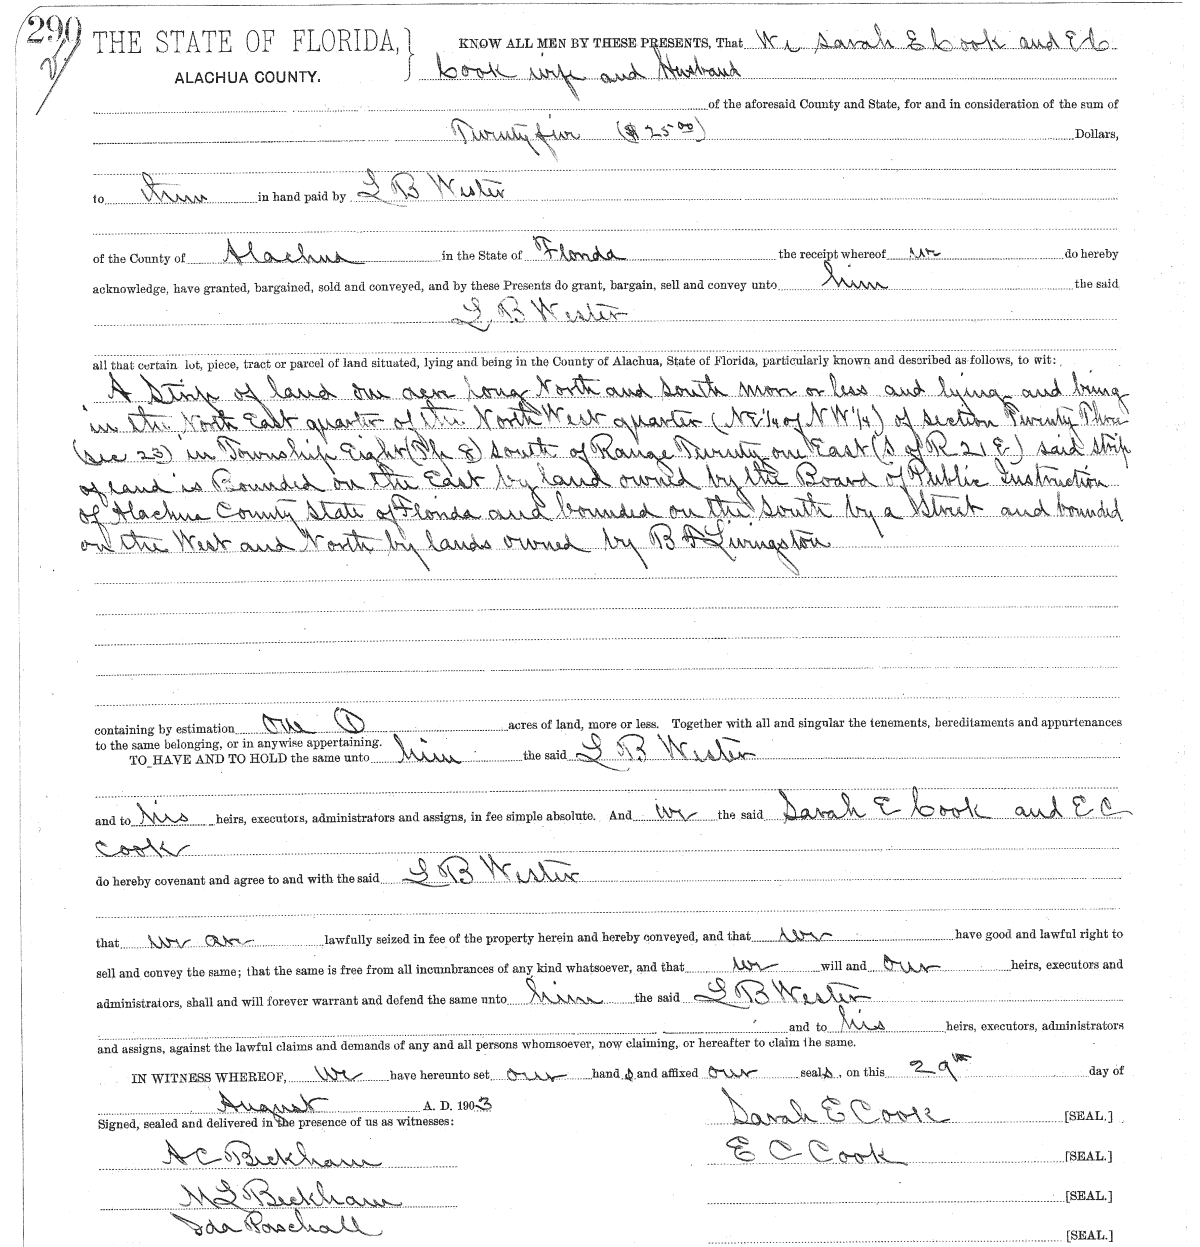 290
THE STATE OF FLORIDA,
ALACHUA COUNTY.
KNOW ALL MEN BY THESE PRESENTS, That We Sarah E Cook and E C
Cook wife and Husband
of the aforesaid County and State, for and in consideration of the sum of
Twenty five ($25.00) Dollars,
to him in hand paid by L B Wester
of the County of Alachua in the State of Florida the receipt whereof we do hereby
acknowledge, have granted, bargained, sold and conveyed, and by these Presents do grant, bargain, sell and convey unto him the said
L B Wester
all that certain lot, piece, tract or parcel of land situated, lying and being in the County of Alachua, State of Florida, particularly known and described as follows, to wit:
A Strip of land one acre Long North and South more or less and lying and being
in the North East quarter of the North West quarter (NE 1/4 of NW 1/4) of section Twenty Three
(sec 23) in Township Eight (Th 8) South of Range Twenty one East (S of R 21 E) said strip
of land is Bounded on the East by land owned by the Board of Public Instruction
of Alachua County State of Florida and bounded on the South by a Street and bounded
on the West and North by lands owned by B F Livingston
containing by estimation one (1) acres of land, more or less. Together with all and singular the tenements, hereditaments and appurtenances
to the same belonging, or in anywise appertaining.
TO HAVE AND TO HOLD the same unto him the said L B Wester
and to his heirs, executors, administrators and assigns, in fee simple absolute. And we the said Sarah E Cook and E C
Cook
do hereby covenant and agree to and with the said L B Wester
that we are lawfully seized in fee of the property herein and hereby conveyed, and that we have good and lawful right to
sell and convey the same; that the same is free from all incumbrances of any kind whatsoever, and that we will and our heirs, executors and
administrators, shall and will forever warrant and defend the same unto him the said L B Wester
and to his heirs, executors, administrators
and assigns, against the lawful claims and demands of any and all persons whomsoever, now claiming, or hereafter to claim the same.
IN WITNESS WHEREOF, We have hereunto set our hands and affixed our seals, on this 29th day of
August A. D. 1903
Signed, sealed and delivered in the presence of us as witnesses:
Sarah E Cook [SEAL.]
A C Beckham
E C Cook [SEAL.]
M L Beckham [SEAL.]
Ida Paschall [SEAL.]